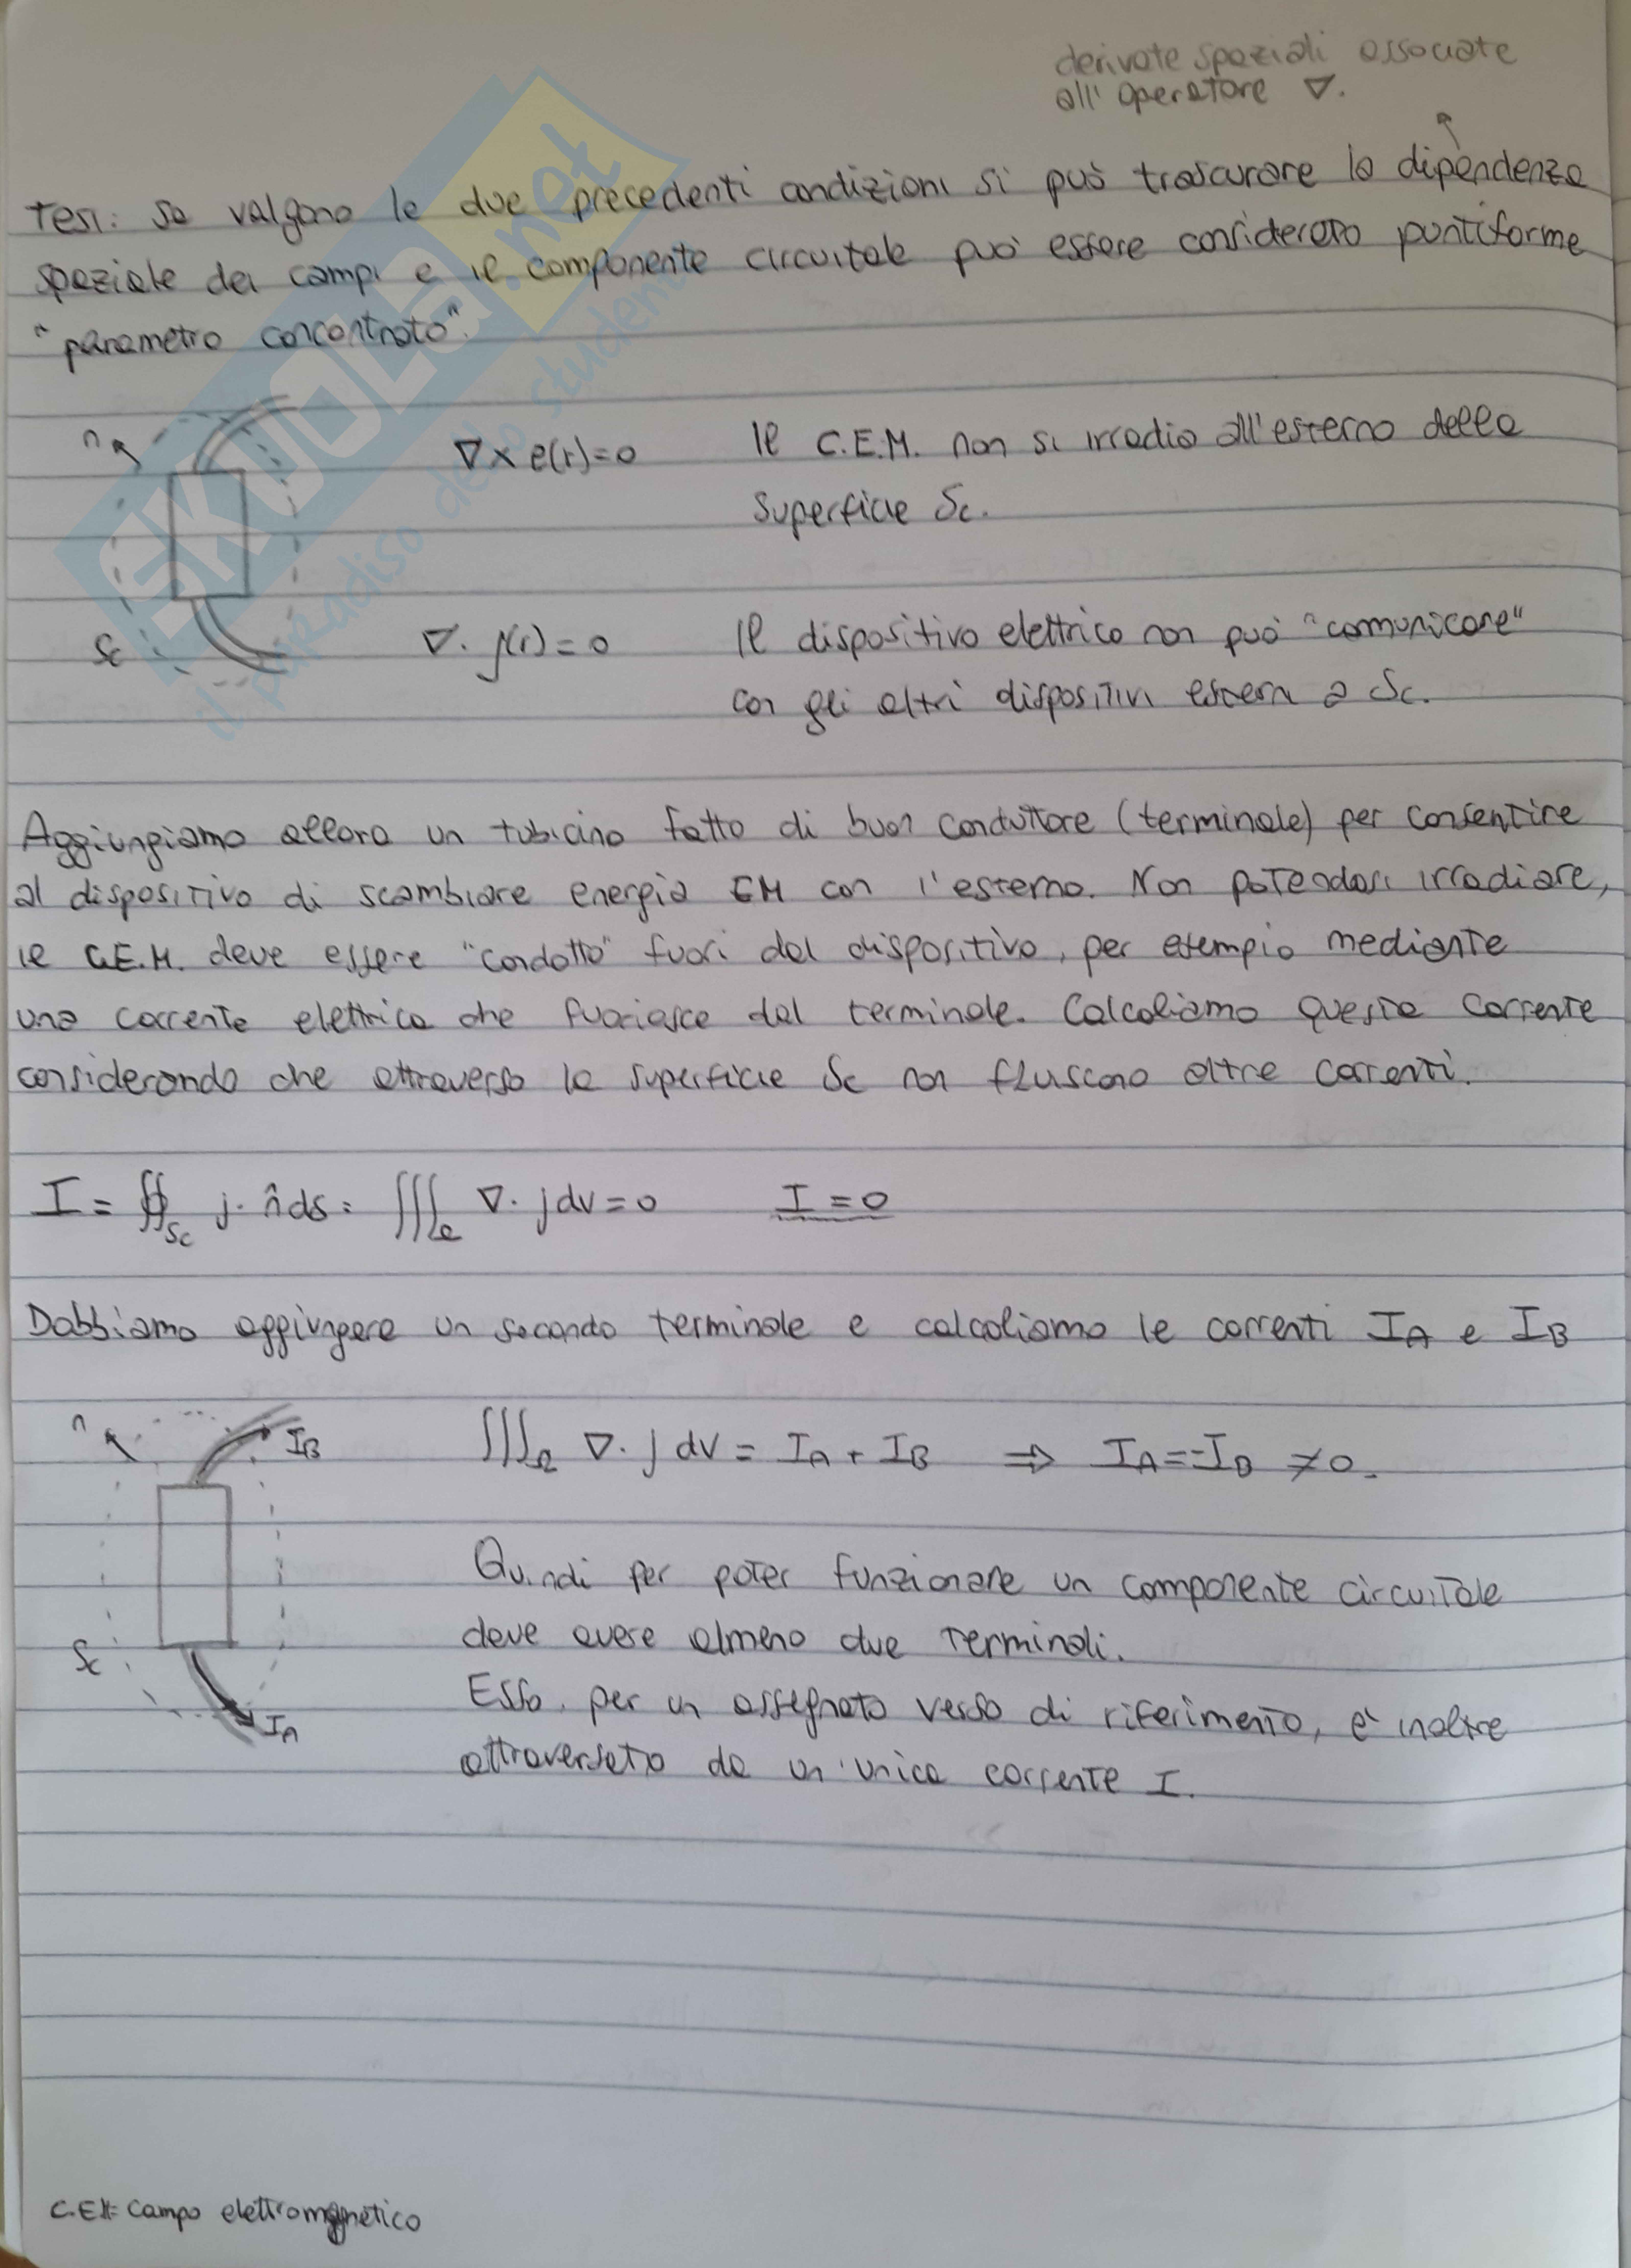 derivate spaziali associate
all'operatore ∇.
Tesi: se valgono le due precedenti condizioni si può trascurare la dipendenza
spaziale dei campi e il componente circuitale può essere considerato puntiforme
"parametro concentrato".
n
∇×e(r)=0
Il C.E.M. non si irradia all'esterno della
superficie Sc.
Sc
∇·j(r)=0
Il dispositivo elettrico non può "comunicare"
con gli altri dispositivi esterni a Sc.
Aggiungiamo allora un tubicino fatto di buon conduttore (terminale) per consentire
al dispositivo di scambiare energia EM con l'esterno. Non potendosi irradiare,
il C.E.M. deve essere "condotto" fuori dal dispositivo, per esempio mediante
una corrente elettrica che fuoriesce dal terminale. Calcoliamo questa corrente
considerando che attraverso la superficie Sc non fluiscono altre correnti.
I = ∯Sc j·n̂ds = ∭Ω ∇·jdv=0 I=0
Dobbiamo aggiungere un secondo terminale e calcoliamo le correnti IA e IB
n
IB
∭Ω ∇·j dv = IA + IB ⇒ IA=-IB ≠0.
Quindi per poter funzionare un componente circuitale
deve avere almeno due terminali.
Sc
Esso, per un assegnato verso di riferimento, è inoltre
IA
attraversato da un'unica corrente I.
C.E.M= Campo elettromagnetico
SKUOLA.net
il paradiso dello studente